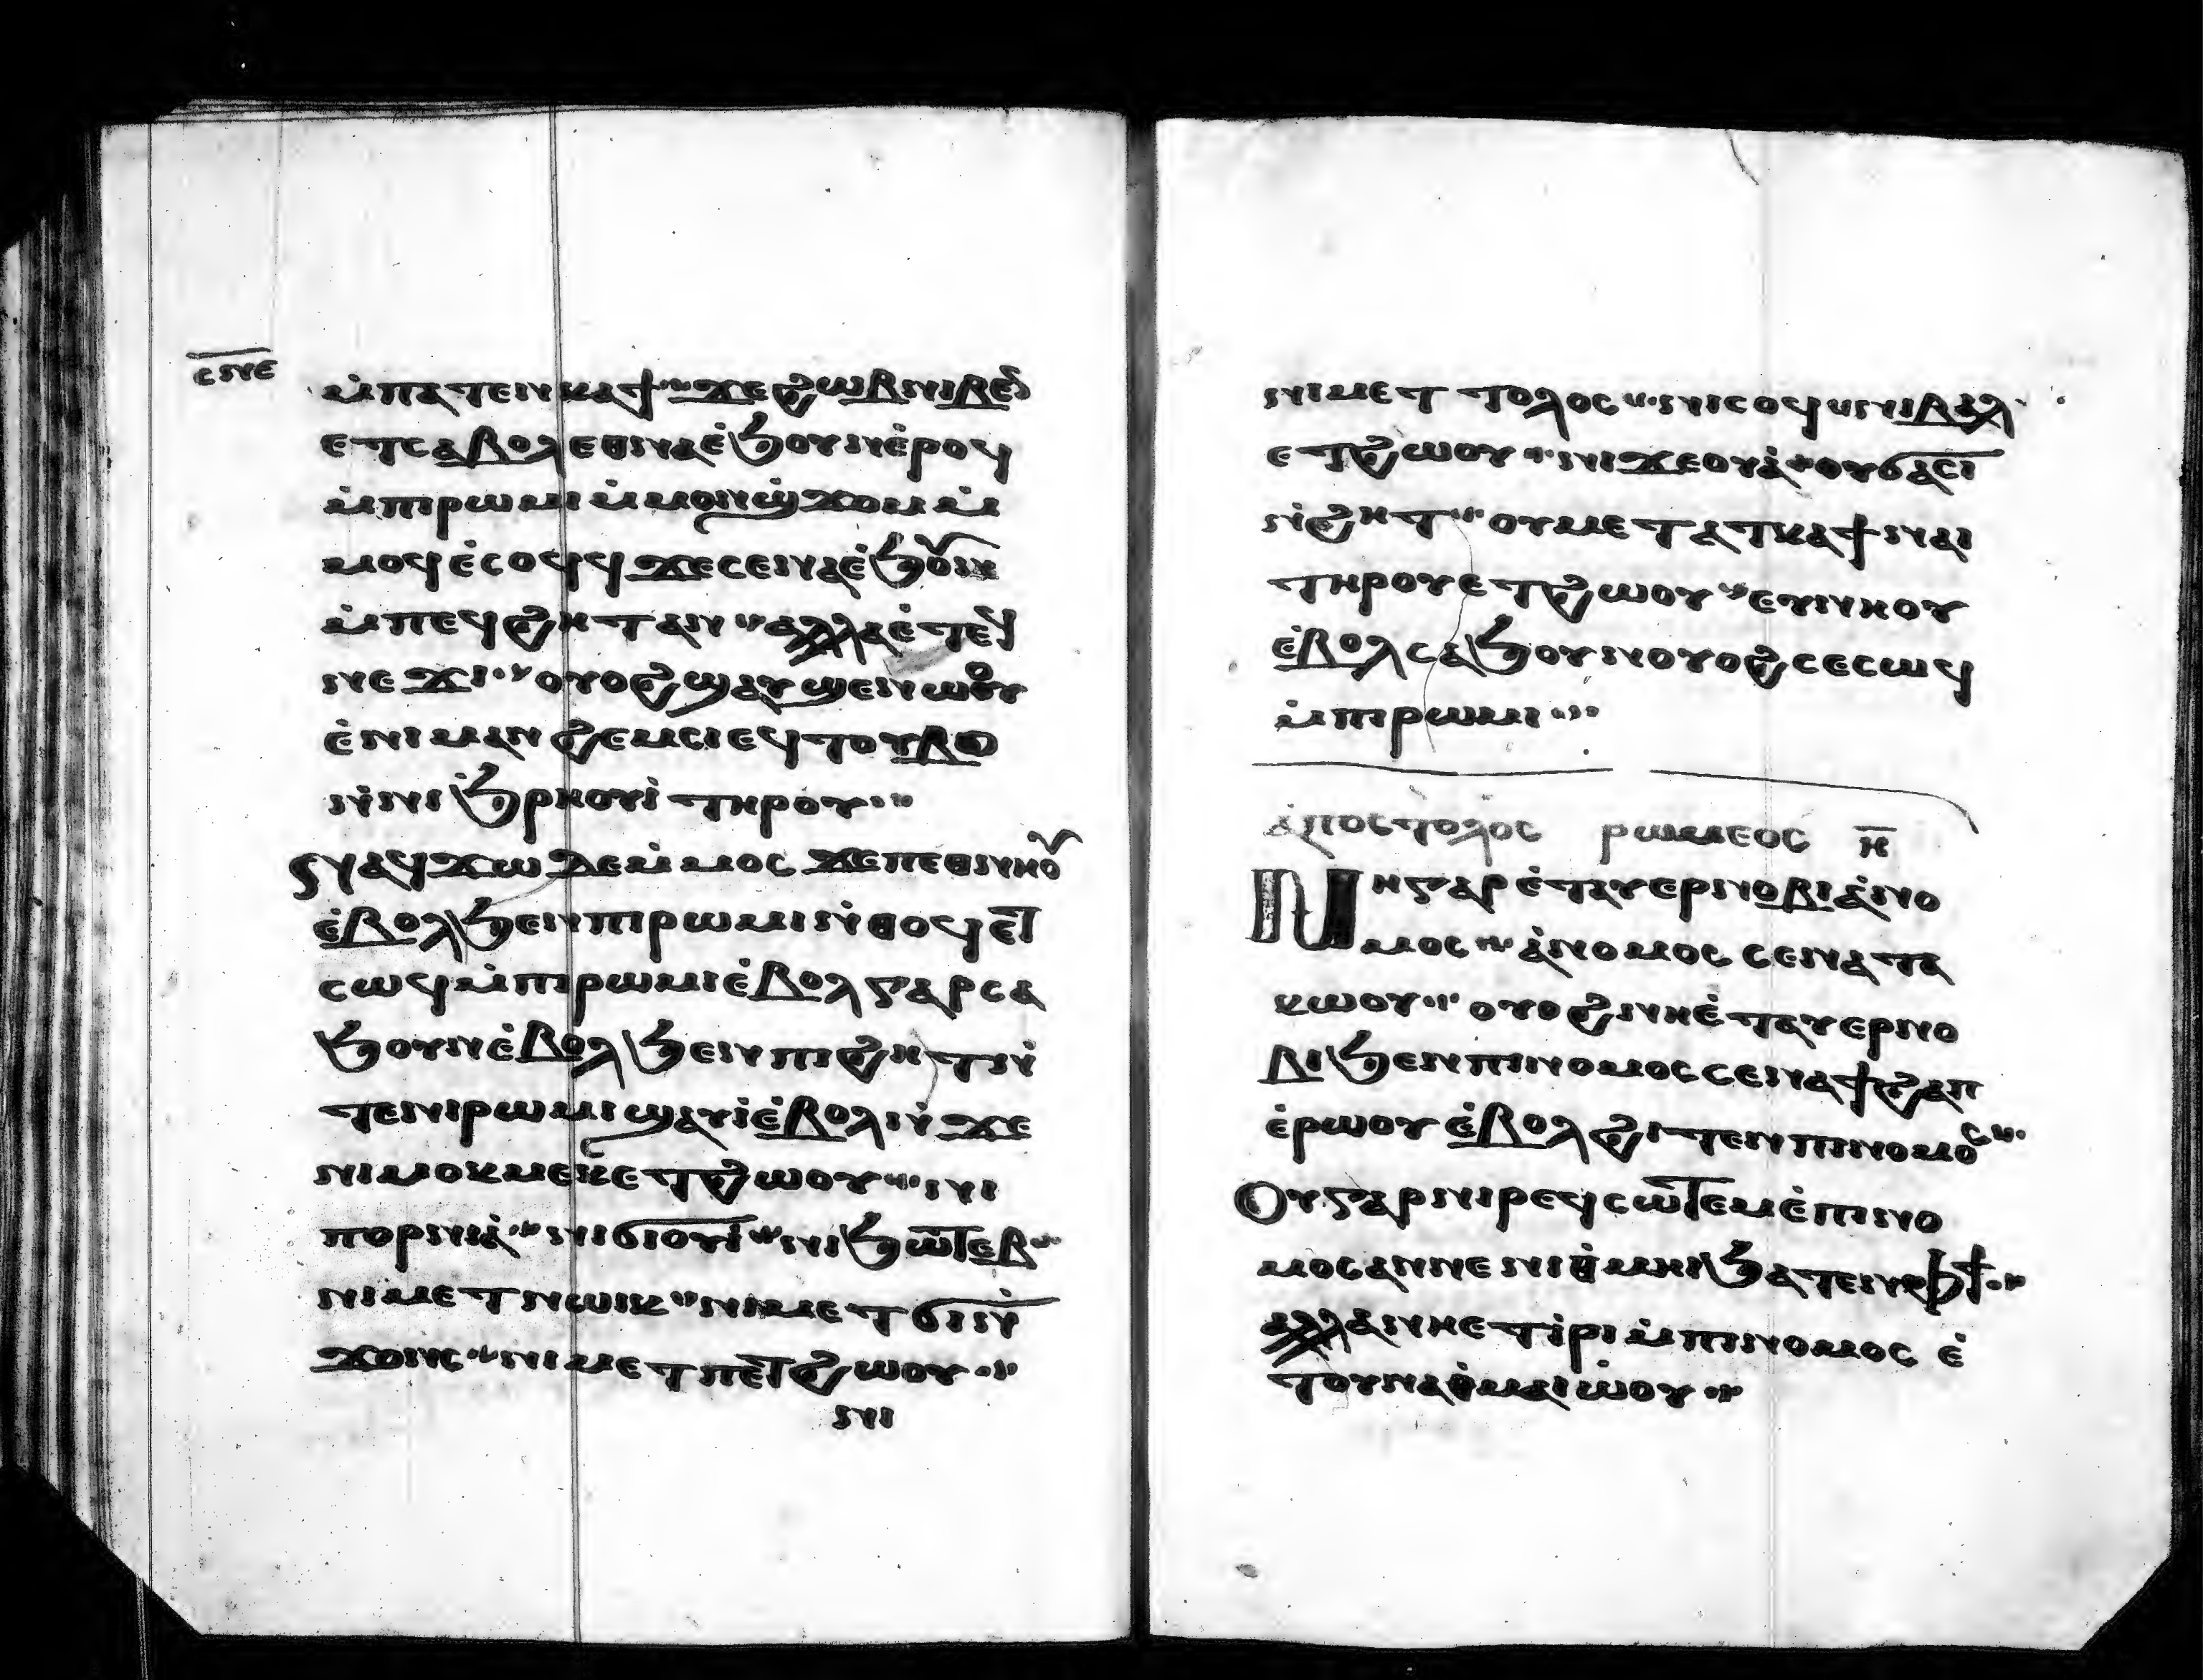 ⲥⲛⲉ
ⲙ̇ⲡⲁⲧⲉⲛⲕⲁϯ ϫⲉϩⲱⲃⲛⲓⲃⲉⲛ
ⲉⲧⲥⲁⲃⲟⲗ ⲉⲑⲛⲁⲉ̇ϧⲟⲩⲛⲉ̇ⲣⲟϥ
ⲙ̇ⲡⲓⲣⲱⲙⲓ ⲙ̇ⲙⲟⲛϣϫⲟⲙ ⲙ̇
ⲙⲟϥ ⲉ̇ⲥⲟϥϥ ϫⲉⲥⲉⲛⲁⲉ̇ϧⲟⲩⲛ
ⲙ̇ⲡⲉϥϩⲏⲧ ⲁⲛ ⲁⲗⲗⲁ ⲉ̇ⲧⲉϥ
ⲛⲉϫⲓ ⲟⲩⲟϩ ϣⲁⲩϣⲉⲛⲱⲟⲩ
ⲉ̇ⲛⲓⲙⲁⲛϩⲉⲙⲥⲓ ⲉϥⲧⲟⲩⲃⲟ
ⲛ̇ⲛⲓϧⲣⲏⲟⲩⲓ̇ ⲧⲏⲣⲟⲩ
ⲛⲁϥϫⲱ ⲇⲉⲙ̇ⲙⲟⲥ ϫⲉⲡⲉⲑⲛⲏⲟⲩ
ⲉ̇ⲃⲟⲗϧⲉⲛⲡⲓⲣⲱⲙⲓ ⲛ̇ⲑⲟϥ ⲉⲧ
ⲥⲱϥ ⲙ̇ⲡⲓⲣⲱⲙⲓ ⲉ̇ⲃⲟⲗ ⲅⲁⲣ ⲥⲁ
ϧⲟⲩⲛ ⲉ̇ⲃⲟⲗϧⲉⲛ ⲡⲓϩⲏⲧ ⲛ̇
ⲧⲉⲛⲓⲣⲱⲙⲓ ϣⲁⲩⲓ̇ ⲉ̇ⲃⲟⲗ ⲛ̇ϫⲉ
ⲛⲓⲙⲟⲕⲙⲉⲕ ⲉⲧϩⲱⲟⲩ ⲛⲓ
ⲡⲟⲣⲛⲓⲁ̇ ⲛⲓϭⲓⲟⲩⲓ̇ ⲛⲓϧⲱⲧⲉⲃ
ⲛⲓⲙⲉⲧⲛⲱⲓⲕ ⲛⲓⲙⲉⲧϭⲓⲛ̇
ϫⲟⲛⲥ ⲛⲓⲙⲉⲧⲡⲉⲧϩⲱⲟⲩ
ⲛⲓ
ⲛⲓⲙⲉⲧⲧⲟⲗⲟⲥ ⲛⲓⲥⲟϥ ⲛⲓⲃⲁⲗ
ⲉⲧϩⲱⲟⲩ ⲛⲓϫⲉⲟⲩⲁ̇ ⲟⲩϭⲁⲥⲓ
ⲛ̇ϩⲏⲧ ⲟⲩⲙⲉⲧⲁⲧⲕⲁϯ ⲛⲁⲓ
ⲧⲏⲣⲟⲩ ⲉⲧϩⲱⲟⲩ ⲉⲩⲛⲏⲟⲩ
ⲉ̇ⲃⲟⲗ ⲥⲁϧⲟⲩⲛ ⲟⲩⲟϩ ⲥⲉⲥⲱϥ
ⲙ̇ⲡⲓⲣⲱⲙⲓ
ⲁ̇ⲡⲟⲥⲧⲟⲗⲟⲥ ⲣⲱⲙⲉⲟⲥ ⲏ̅
ⲛⲏ ⲅⲁⲣ ⲉ̇ⲧⲁⲩⲉⲣⲛⲟⲃⲓ ⲁ̇ⲛⲟ
ⲙⲟⲥ ⲁ̇ⲛⲟⲙⲟⲥ ⲥⲉⲛⲁⲧⲁ
ⲕⲱⲟⲩ ⲟⲩⲟϩ ⲛⲏ ⲉ̇ⲧⲁⲩⲉⲣⲛⲟ
ⲃⲓ ϧⲉⲛⲡⲓⲛⲟⲙⲟⲥ ⲥⲉⲛⲁϯϩⲁⲡ
ⲉ̇ⲣⲱⲟⲩ ⲉ̇ⲃⲟⲗϩⲓⲧⲉⲛⲡⲓⲛⲟⲙⲟⲥ
ⲟⲩ ⲅⲁⲣ ⲛⲓⲣⲉϥⲥⲱⲧⲉⲙ ⲉ̇ⲡⲓⲛⲟ
ⲙⲟⲥ ⲁⲛ ⲛⲉ ⲛⲓⲑⲙⲏⲓ ϧⲁⲧⲉⲛⲫϯ
ⲁⲗⲗⲁ ⲛⲏ ⲉⲧⲓ̇ⲣⲓ ⲙ̇ⲡⲓⲛⲟⲙⲟⲥ ⲉ̇
ⲧⲟⲩⲛⲁⲑⲙⲁⲓⲱ̇ⲟⲩ